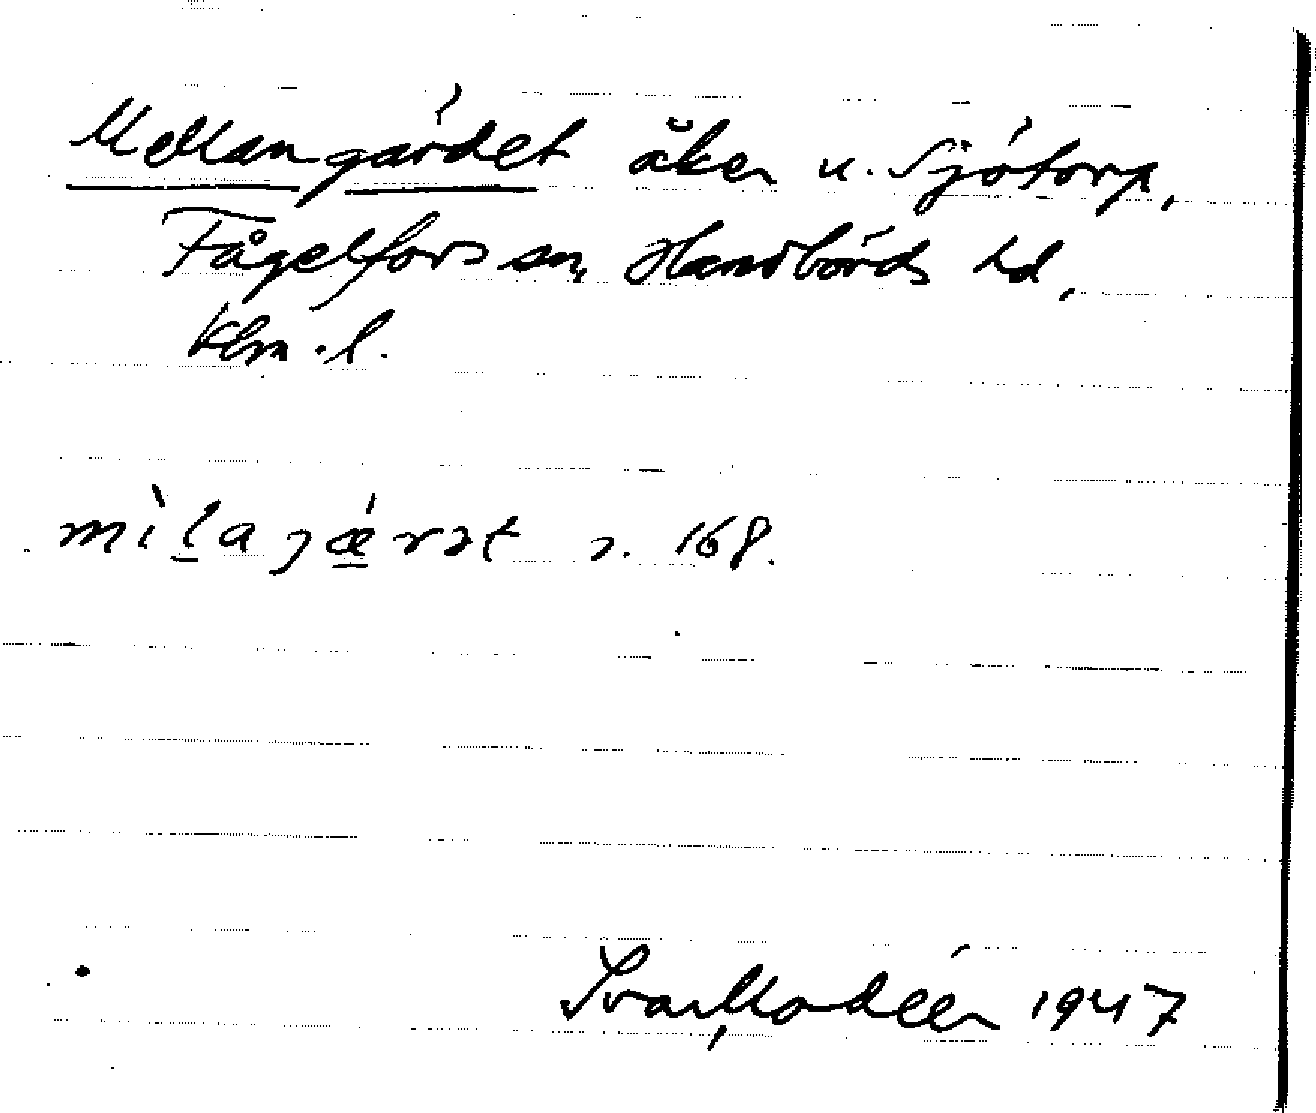 Mellangärdet åker u. Sjötorp,
Fågelfors sn, Handbörds hd,
Klm. l.
mìl̠agǽ̠rət s. 168.
Ivar Modéer 1947